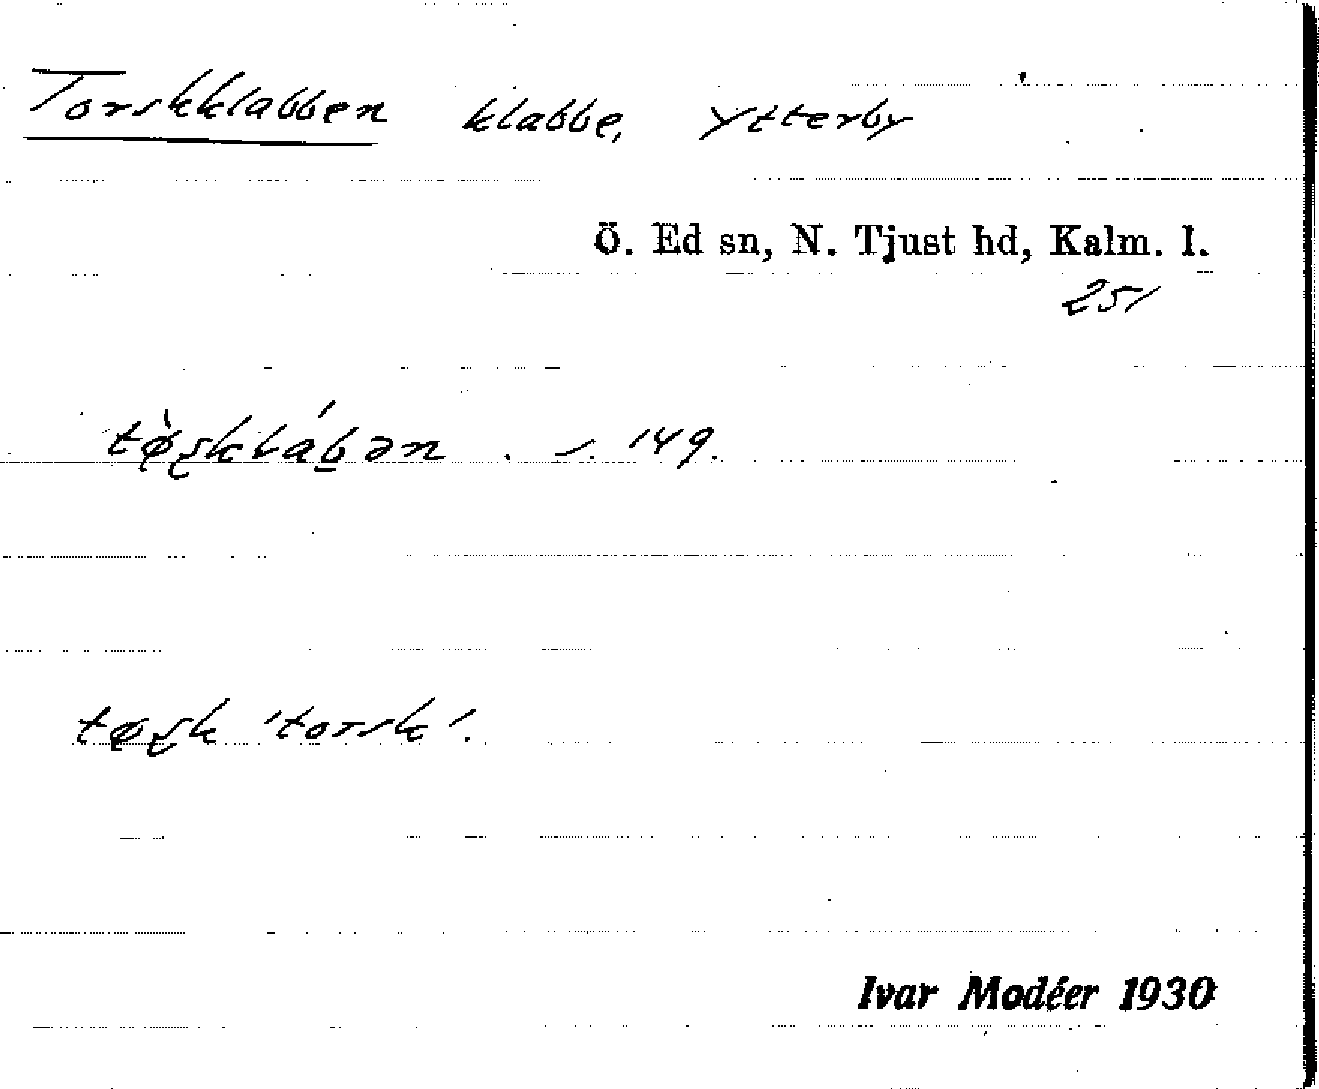 Torskklabben klabbe, Ytterby
Ö. Ed sn, N. Tjust hd, Kalm. l.
251
tø̀ʂklába̱ən . s. 149.
tøʂk 'torsk'.
Ivar Modéer 1930